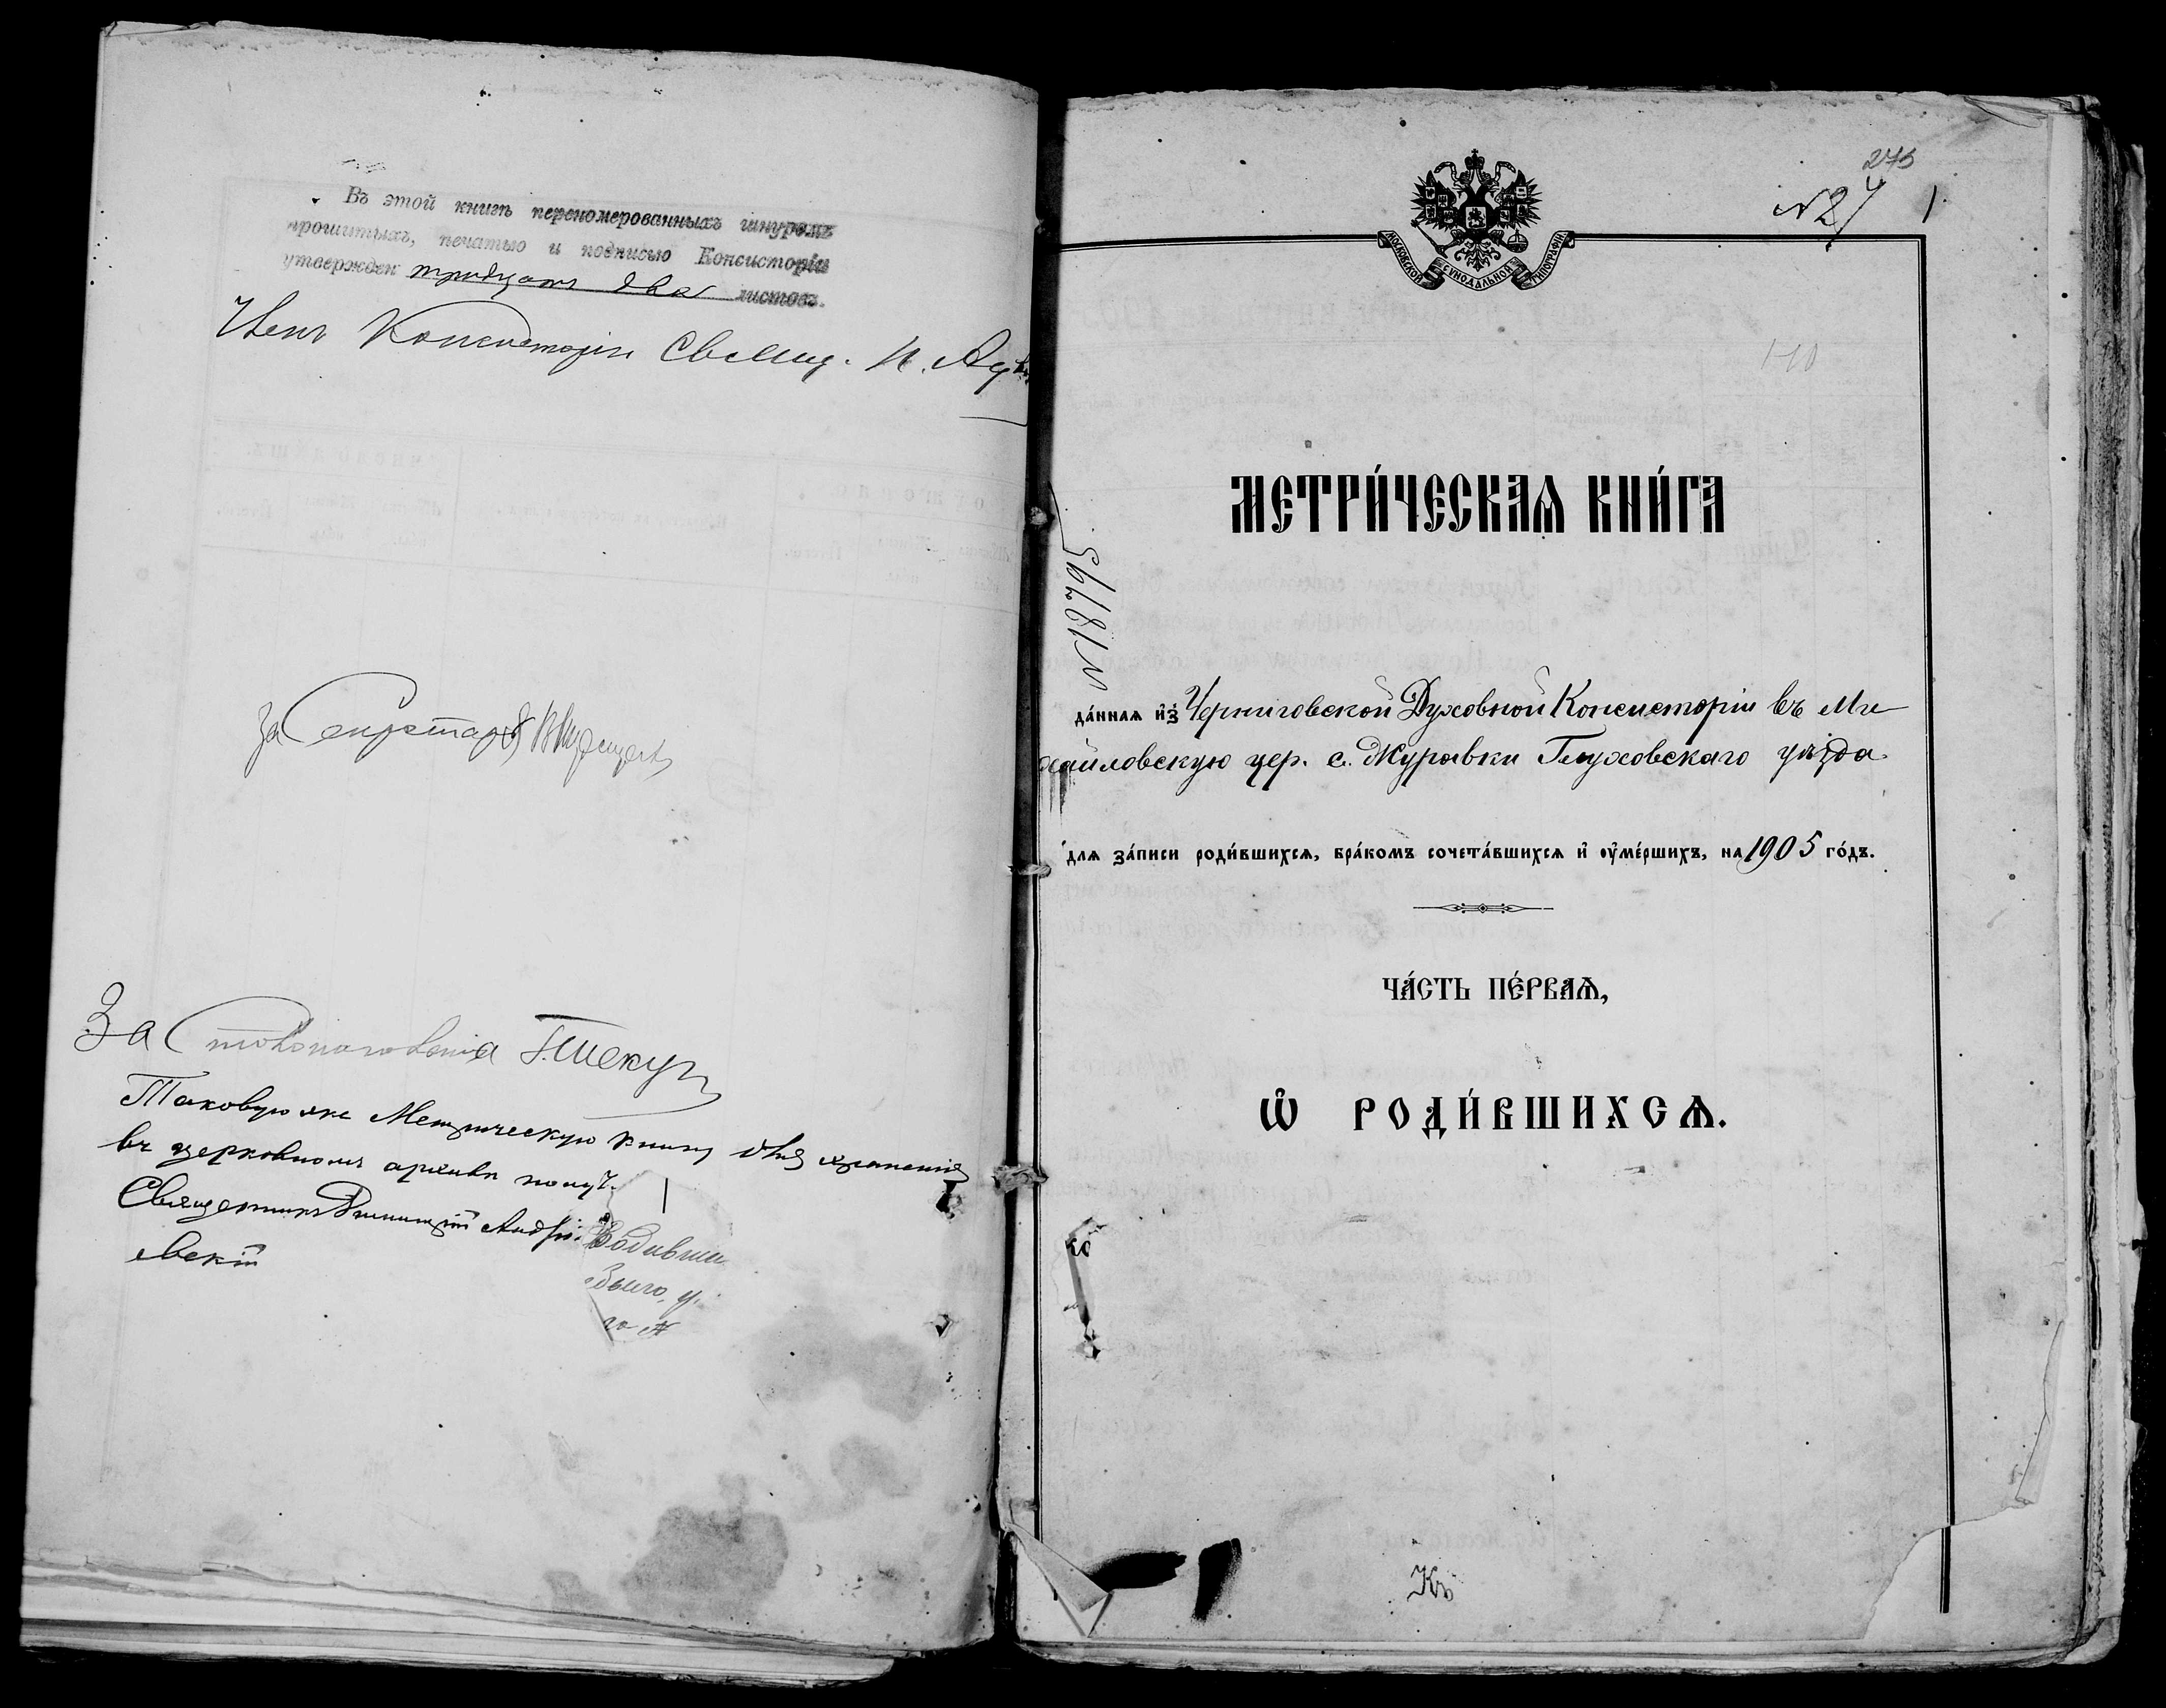 Въ этой книгѣ переномерованныхъ шнуромъ
прошитыхъ, печатью и подписью Консисторіи
утвержден тридцать два листовъ.
Членъ Консисторіи Свящ. И.
За Секретаря
За Столоначальника
Таковую же Метрическую книгу для храненія
въ церковномъ архивѣ получ.
Священникъ Димитрій Андрі
евскій
275
№ 24 1
МОСКОВСКОЙ СѴНОДАЛЬНОЙ ТИПОГРАФІИ
110
МЕТРИ́ЧЕСКАѦ КНИ́ГА
№ 18795
да́ннаѧ и҆з̾ Черниговской Духовной Консисторіи въ Ми
хайловскую цер. с. Журавки Глуховскаго уѣзда
длѧ за́писи роди́вшихсѧ, бра́комъ сочета́вшихсѧ и҆ ᲂу҆ме́ршихъ, на 1905 го́дъ.
ЧА́СТЬ ПЕ́РВАѦ,
Ѡ҆ РОДИ́ВШИХСѦ.